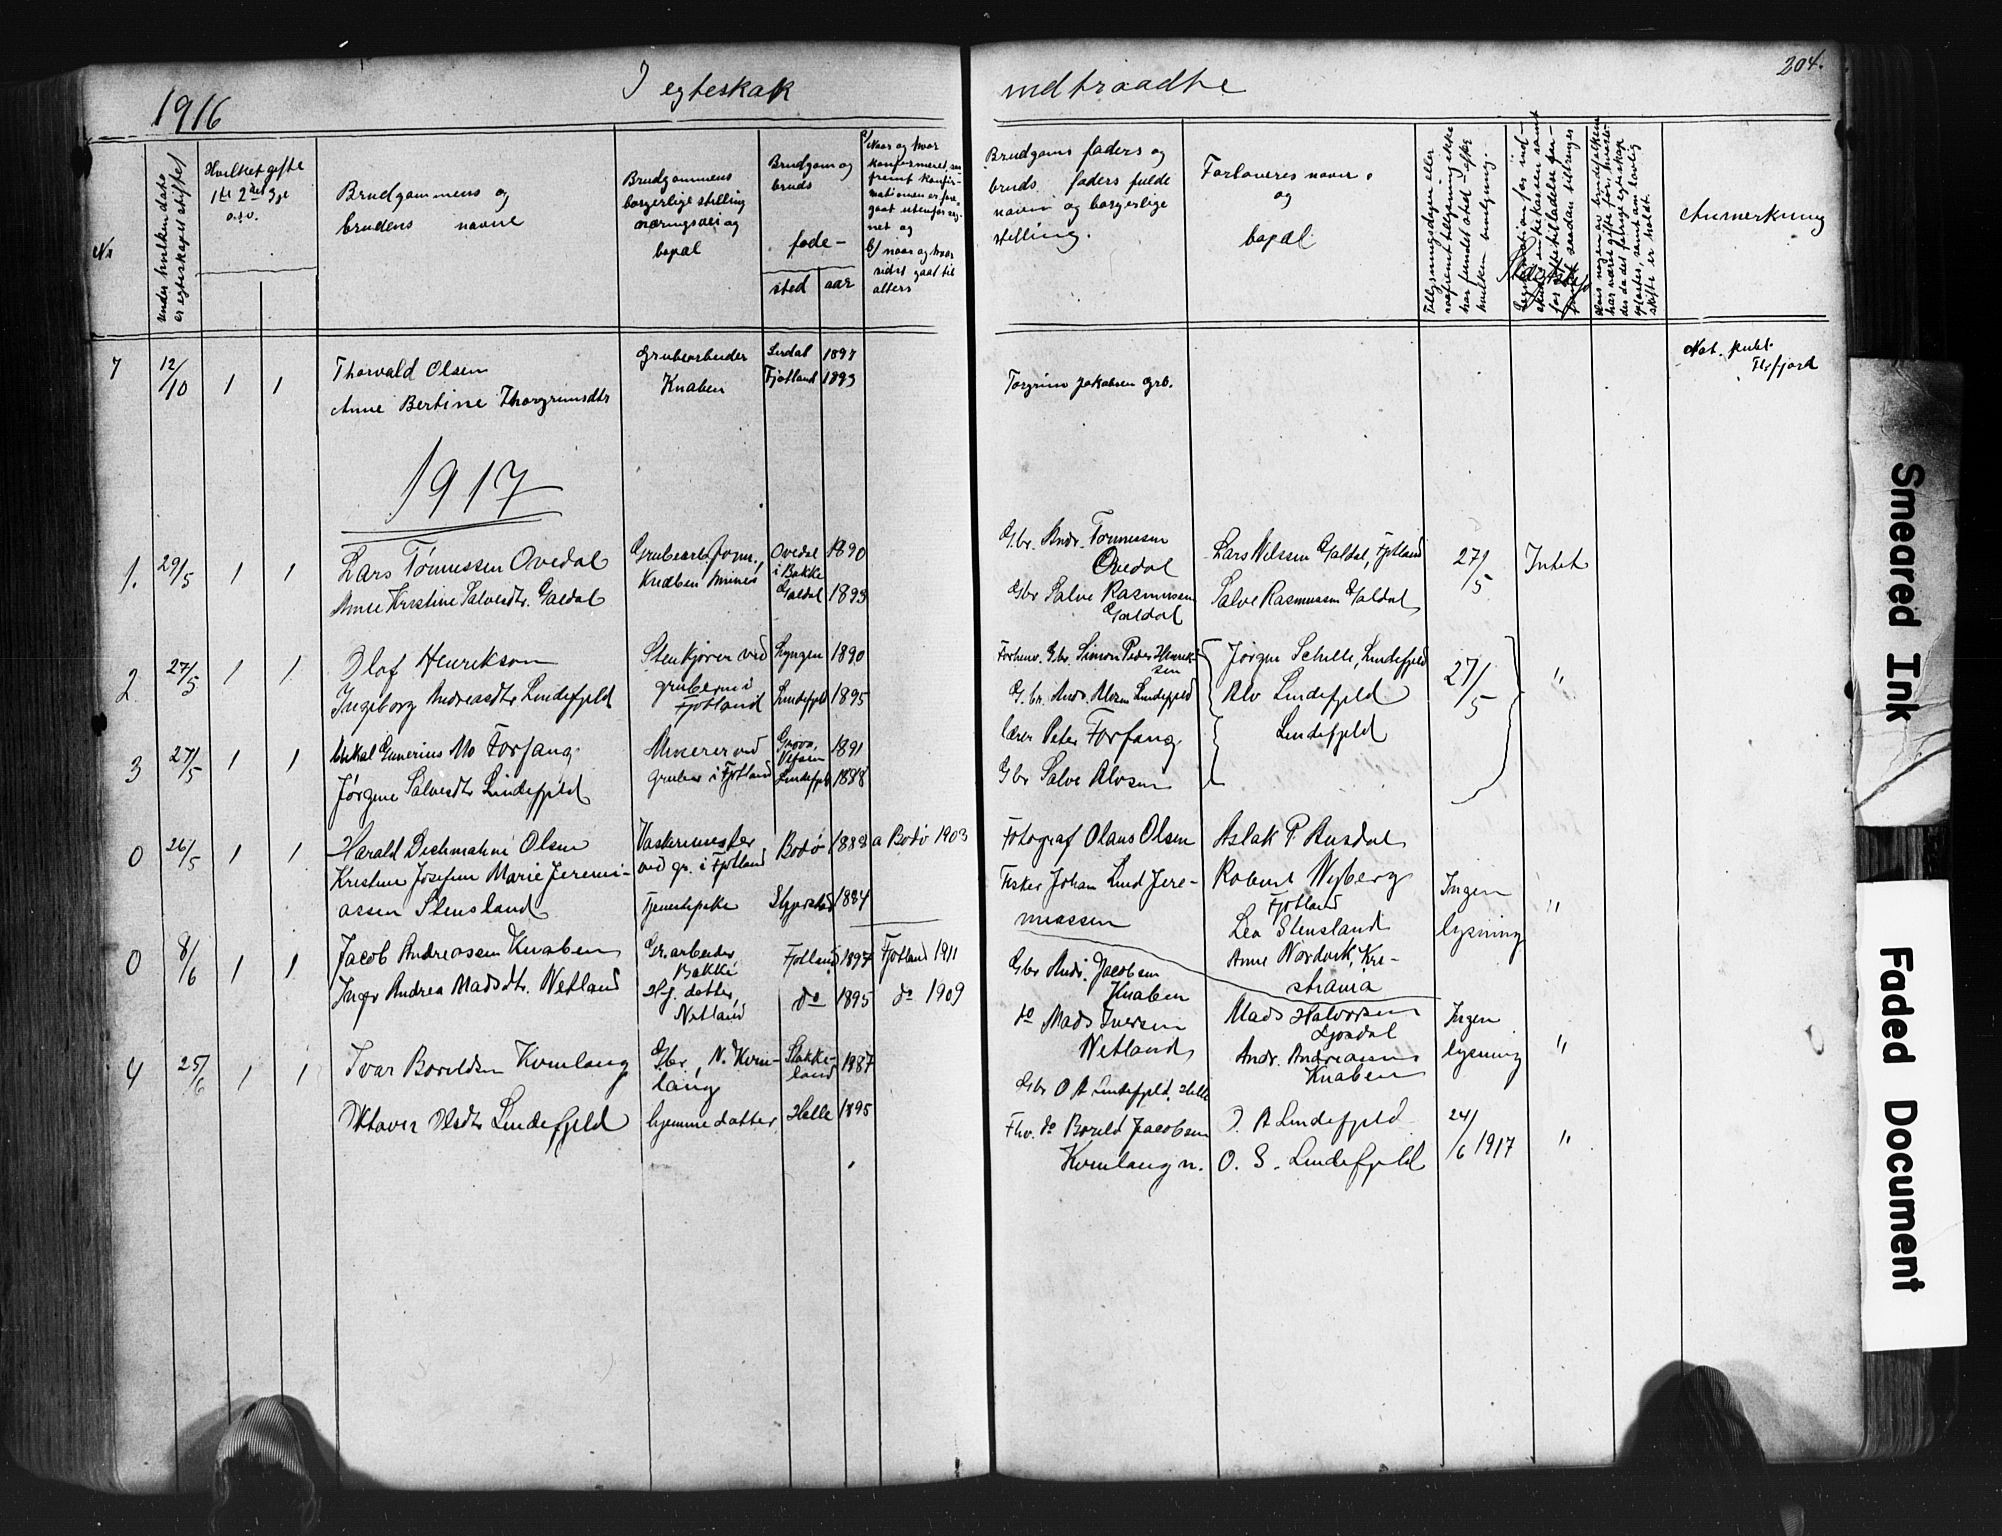 204.
1916
I egteskab
indtraadte
No
under hvilken dato er egteskapet stiftet
Hvilket gifte
1ste 2det 3je
o.s.v.
Brudgommens og
brudens navne
Brudgommens
borgerlige stilling
næringsvei og
bopæl
Brudgom og
bruds
føde-
sted
aar
Naar og hvor
konfirmeret, saa
fremt konfir-
mationen er fore-
gaat utenfor sog-
net og
naar og hvor
sidst gaat til
alters
Brudgoms faders og
bruds faders fulde
navn og borgerlige
stilling.
Forloveres navn
og
bopæl
Tillysningsdagen eller
saafremt tillysning ikke
har fundet sted, efter
hvilken bevilgning.
Anmerkning
7
12/10
1
1
Thorvald Olsen
Anne Bertine Thorgrimsdtr
Grubearbeider
Knaben
Sirdal 1897
Fjotland 1893
Torgrim Jakobsen grb.
Not. publ.
Flekkefjord
1917
1.
29/5
1
1
Lars Tønnessen Ovedal
Anne Kristine Salvesdtr. Galdal
Grubearb. form.,
Knaben miner
Ovedal
i Bakke
1890
Galdal 1893
Gbr. Andr. Tønnessen
Ovedal
Gbr Salve Rasmussen
Galdal
Lars Nilssen Galdal, Fjotland
Salve Rasmussen Galdal
27/5
Intet
2
27/5
1
1
Olaf Henrikson
Ingeborg Andreasdtr Lindefjeld
Stenkjører ved
gruberne i
Fjotland
Lyngen 1890
Lindefjeld 1895
Forhenv. Gbr. Simon Peder Henrik-
sen
G. br. Andr. Alvsen Lindefjeld
Jörgen Schille, Lindefjeld
Alv Lindefjeld
Lindefjeld
27/5
"
3
27/5
1
1
Mikal Gunerius Mo Forfang
Jørgine Salvesdtr Lindefjeld
Minerer ved
gruber i Fjotland
Vefsen
1891
Lindefjeld 1888
lærer Peter Forfang
Gbr Salve Alvsen
0
26/5
1
1
Harald Olsen
Kristine Josefine Marie Jeremi-
assen Stensland
Vaskerimester
ved gr. i Fjotland
Tjenestepike
Bodø 1888
a Bodö 1903
1884
Fotograf Olaus Olsen
Fisker Johan Lind Jere-
miassen
Aslak P. Ausdal
Robert Nyberg
Fjotland
Lea Stensland
Anne Nordvik, Kri-
stiania
Ingen
lysning
"
0
8/6
1
1
Jacob Andreassen Knaben
Inger Andrea Madsdtr. Netland
Gr. arbeider,
Bakke
Hj. datter,
Netland
Fjotland 1897
Fjotland 1911
do 1895
do 1909
Gbr Andr. Jacobsen
Knaben
do Mads Iversen
Netland
Mads Halvorsen
Ljosdal
Andr. Andreassen
Knaben
Ingen
lysning
"
4
25/6
1
1
Ivar Boreldsen Kvinlaug
Oktavie Olsdtr Lindefjeld
Gbr. N. Kvin-
laug
hjemmedatter
Stakke-
land
1887
Helle 1895
Gbr O A Lindefjeld, Helle
Fhv. do Boreld Jacobsen
Kvinlaug n.
O. A Lindefjeld
O. S. Lindefjeld
24/6 1917
"
Smeared Ink
Faded Document